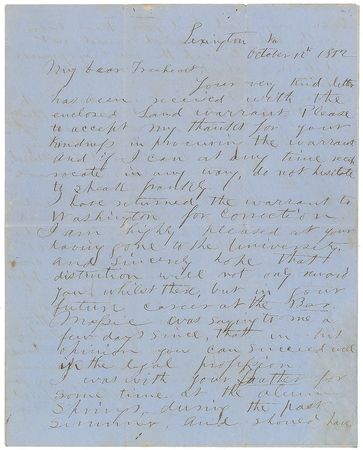 Lexington Va
October 12th 1852
My dear Freeheart
Your very kind letter
has been received with the
enclosed Land warrant. Please
to accept my thanks for your
kindness in procuring the warrant
and if I can at any time recip
rocate in any way, do not hesitate
to speak frankly
I have returned the warrant to
Washington for correction.
I am highly pleased at your
having gone to the University,
and sincerely hope that
distinction will not only await
you whilst there, but in your
future career at the Bar
Massie was saying to me a
few days since, that in his
opinion you can succeed well
in the legal profession
I was with your father for
some time at the alum
Springs, during the past
summer, and should have